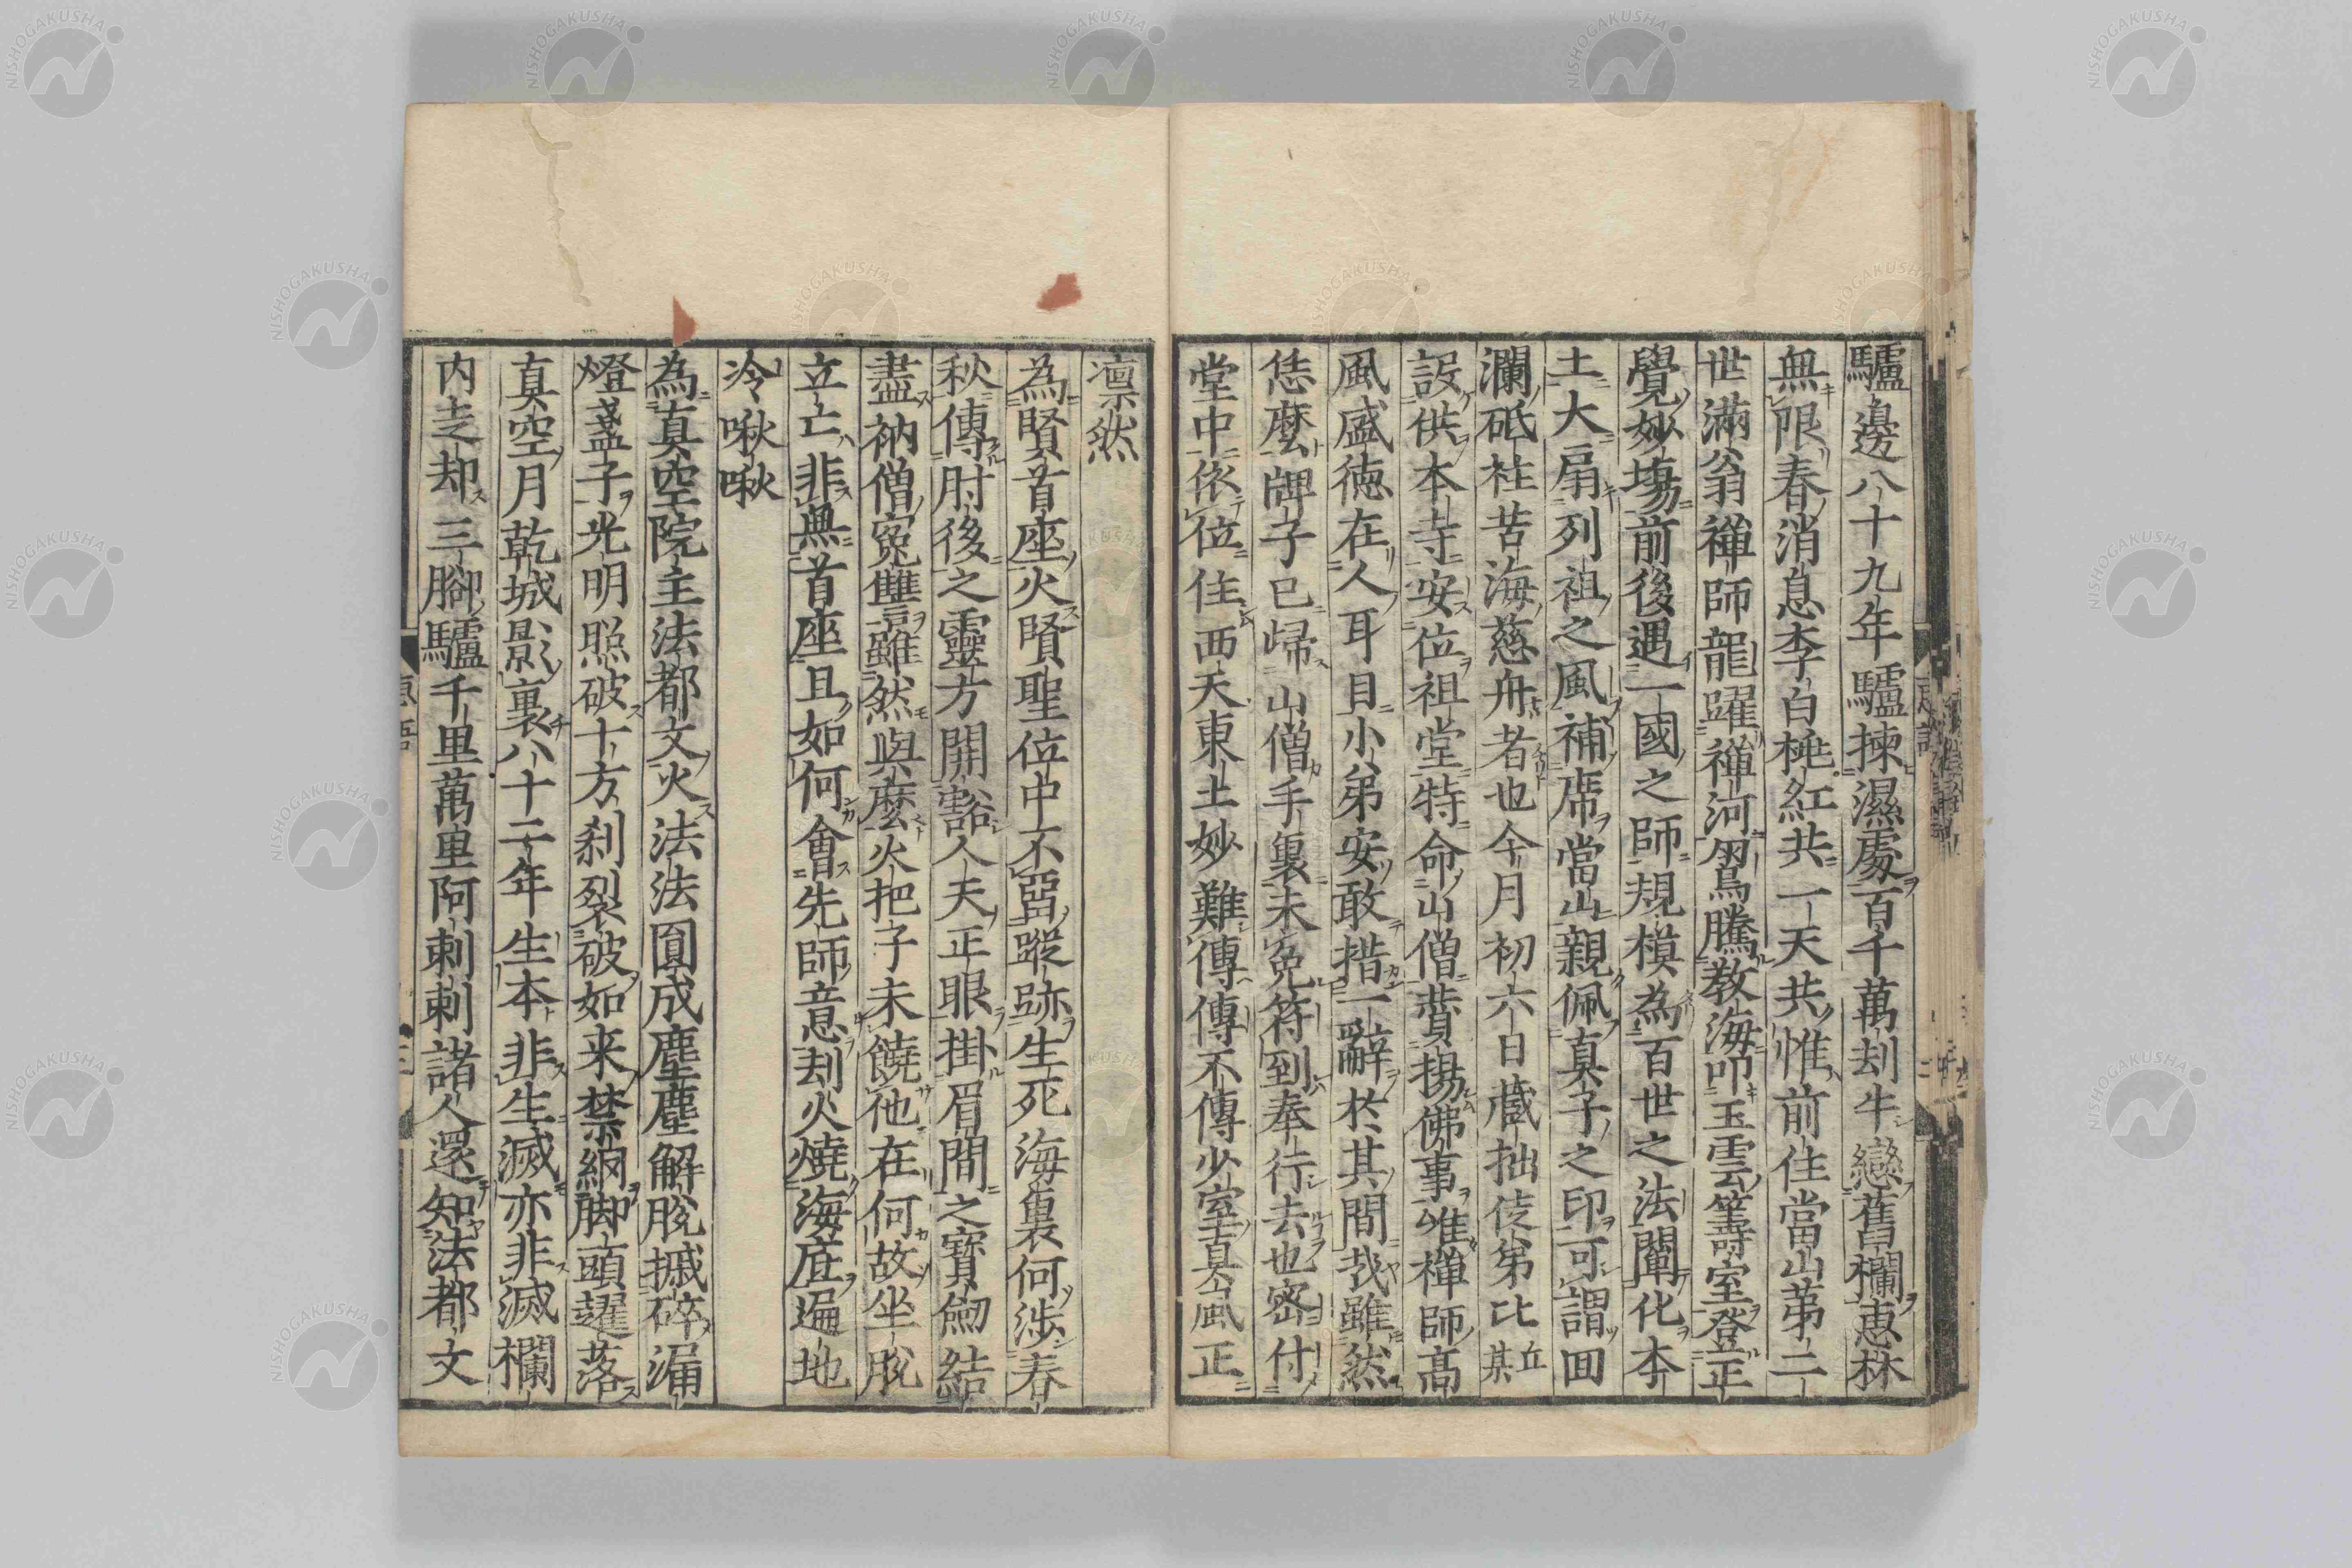 驢邊八十九年驢揀濕處百千萬劫牛戀舊欄恵林
無限春消息李白桃紅共一天共惟前住當山第二
世滿翁禅師龍躍禅河鳳騰教海叩玉雲籌室登正
覺妙塲前後遇一國之師規模為百世之法闡化本
土大扇列祖之風補席當山親佩真子之印可謂回
瀾砥柱苦海慈舟者也今月初六日蔵拙徒弟比丘某
設供本寺安位祖堂特命山僧賛揚佛事唯禅師高
風盛徳在人耳目小弟安敢措一辭於其間哉雖然
恁麼牌子已歸山僧手裏未免符到奉行去也密付
堂中依位住西天東土妙難傳傳不傳少室真風正
凛然
為賢首座火賢聖位中不畱蹤跡生死海裏何渉春
秋傳肘後之靈方開豁人天正眼掛眉間之寶劔結
盡衲僧寃讎雖然與麼火把子未饒他在何故坐脱
立亡非無首座且如何會先師意劫火燒海底遍地
冷啾啾
為真空院主法都文火法法圓成塵塵解脱摵碎漏
燈盞子光明照破十方刹裂破如来禁網脚頭趯落
真空月乾城影裏八十二年生本非生滅亦非滅欄
内走却三腳驢千里萬里阿剌剌諸人還知法都文